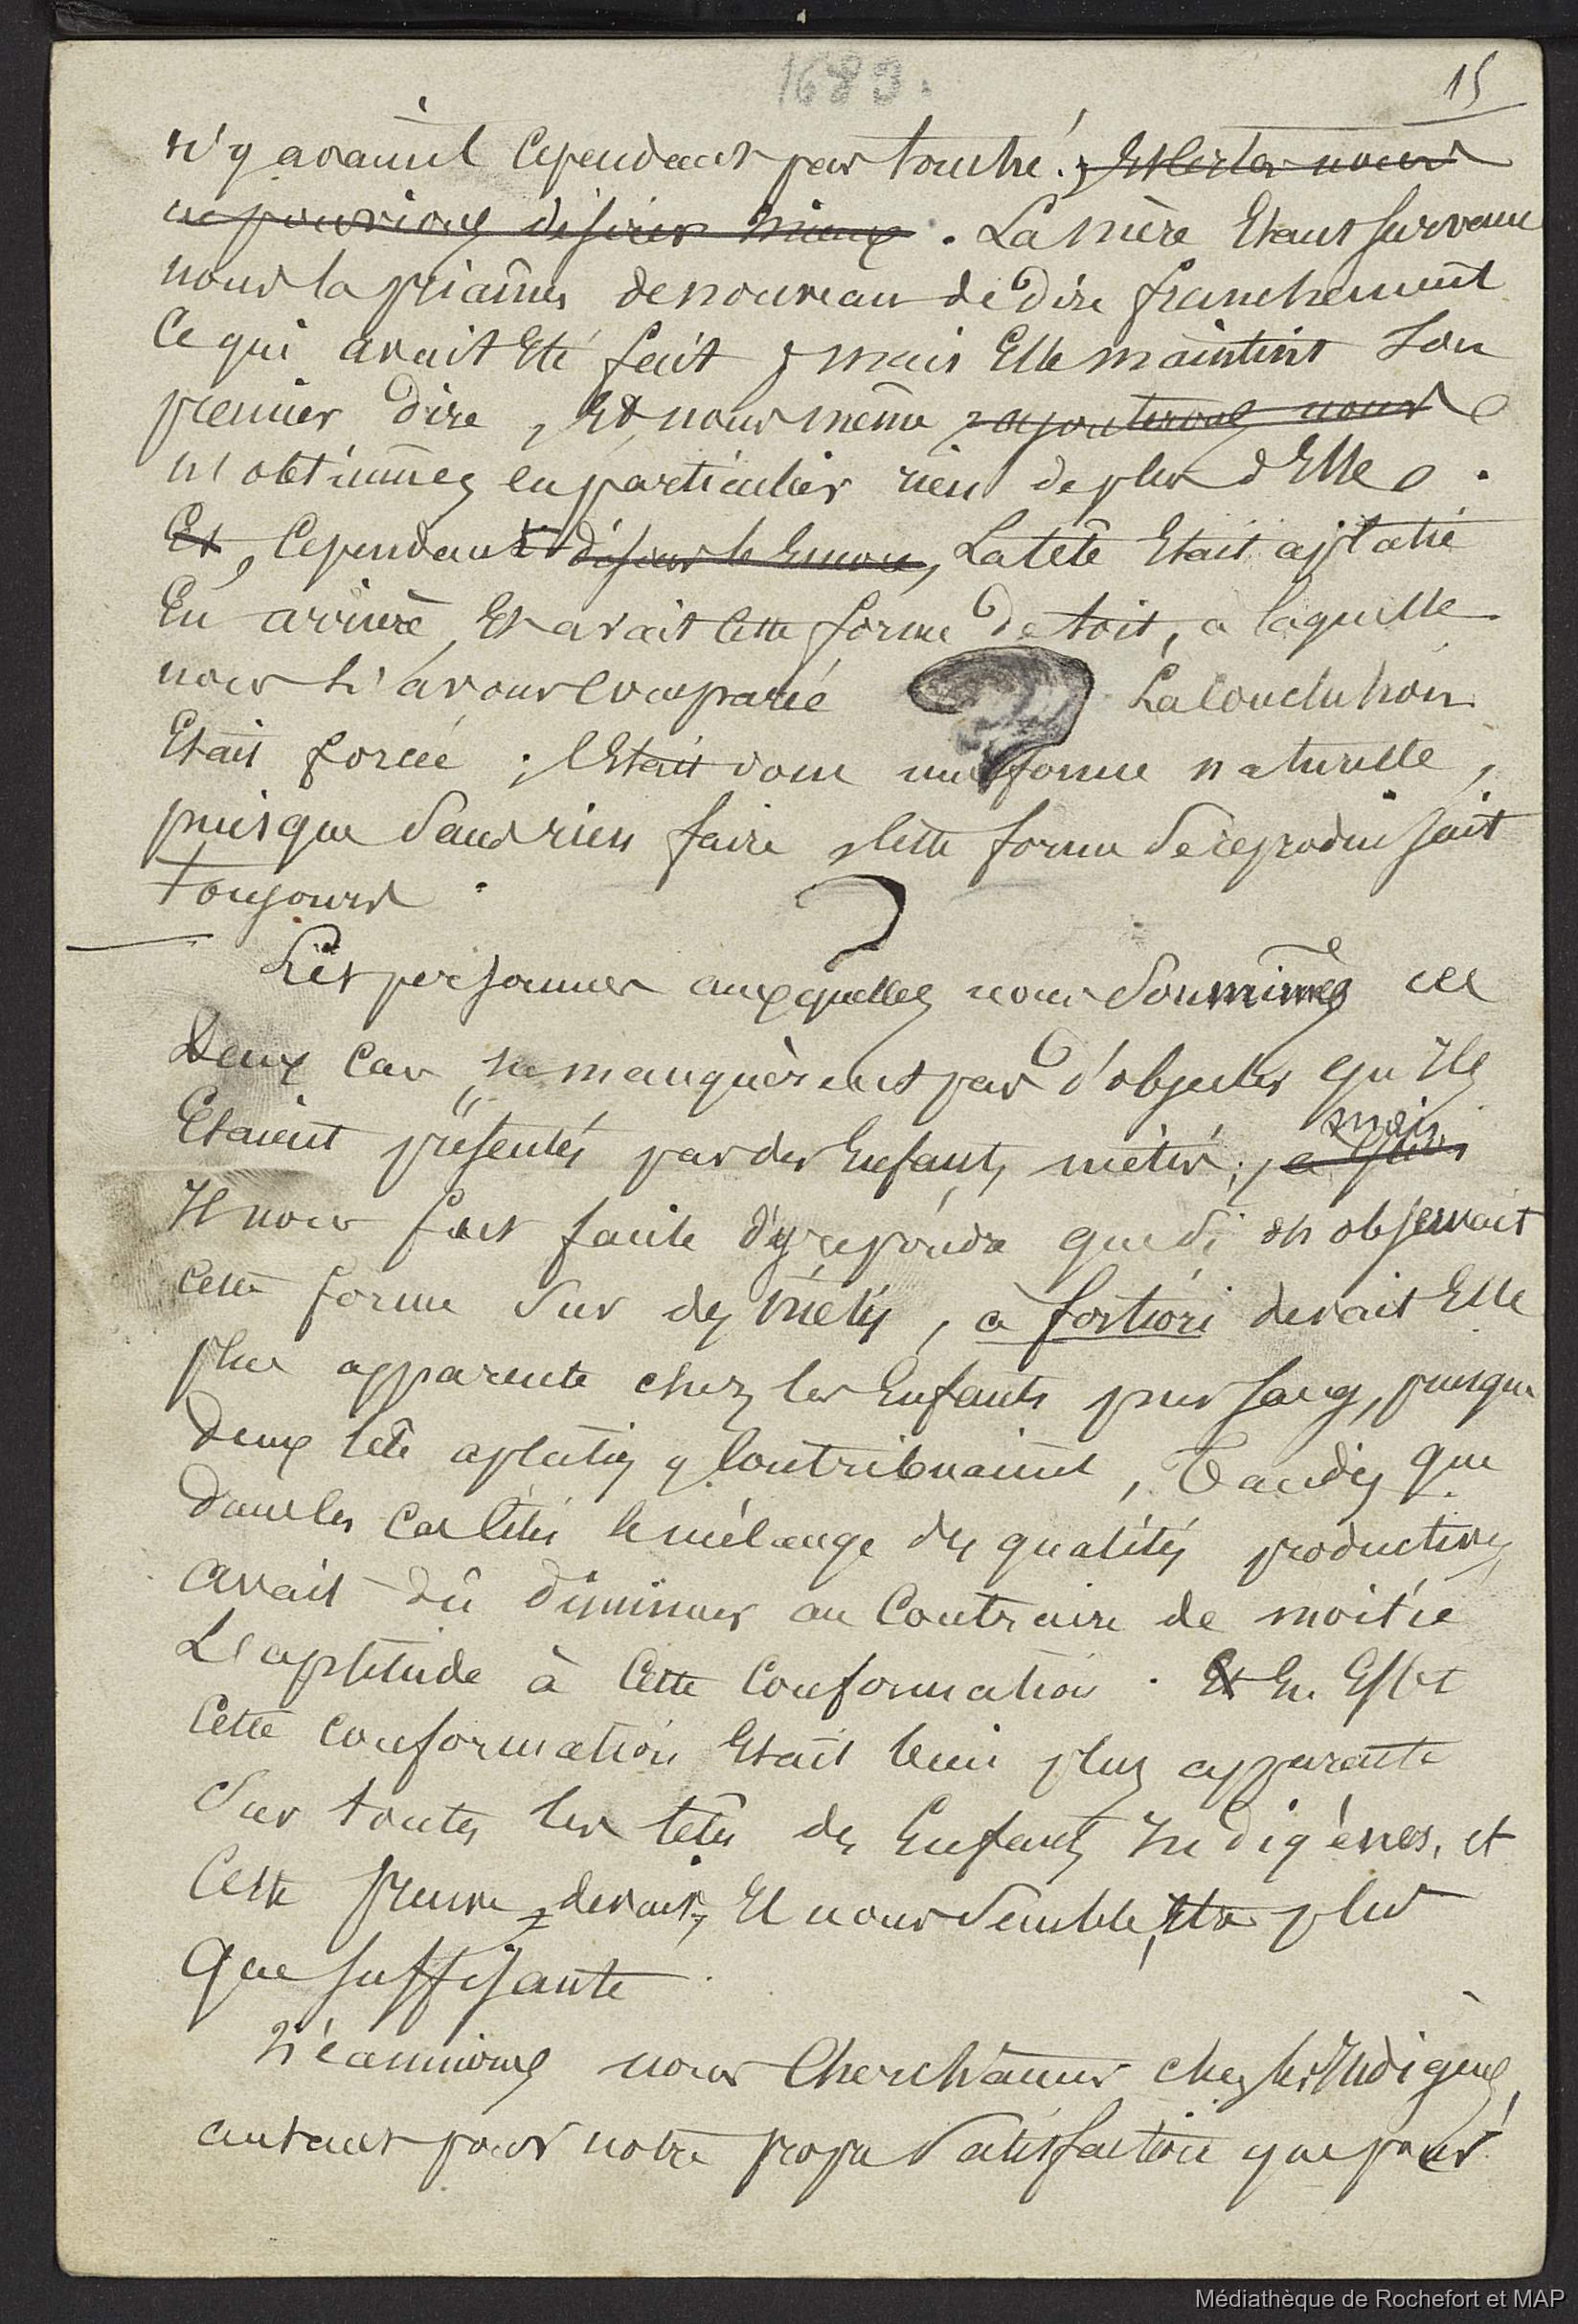 1689.
15
n'y avaient cependant pas touché. ; Et certes nous
ne pouvions désirer mieux . La mère Etant survenue
nous la priâmes de nouveau de dire franchement
Ce qui avait Eté fait ; mais Elle maintint son
premier dire , Et nous même , ajouterons nous
n'obtinmes en particulier rien de plus d'Elle .
Et, Cependant disons le Encore, La tête Etait aplatie
En arrière Et avait cette forme de toit, a laquelle
nous l'avons comparée La conclusion
Etait forcée ; C'Etait donc une forme naturelle ,
puisque sans rien faire , cette forme se reproduisait
toujours .
Les personnes auxquelles nous soumimes ces
Deux cas ne manquèrent pas d'objecter qu'Ils
Etaient présentés par des Enfants métis ; mais
Il nous fut facile d'y repondre que si on observait
cette forme sur des métis , à fortiori devait Elle
plus apparente chez les Enfants pur sang, puisque
deux tête aplaties y contribuaient , Tandis que
dans les le mélange des qualités productives
avait dû diminuer au Contraire de moitié
L'aptitude à Cette Conformation . Et En Effet
Cette conformation Etait bien plus apparente
sur toutes les têtes des Enfants Indigènes, et
Cette preuve devait, Il nous semble, Etre plus
que suffisante .
Néanmoins nous Cherchâmes chez les Indigènes,
autant pour notre propre satisfaction que pour
Médiathèque de Rochefort et MAP